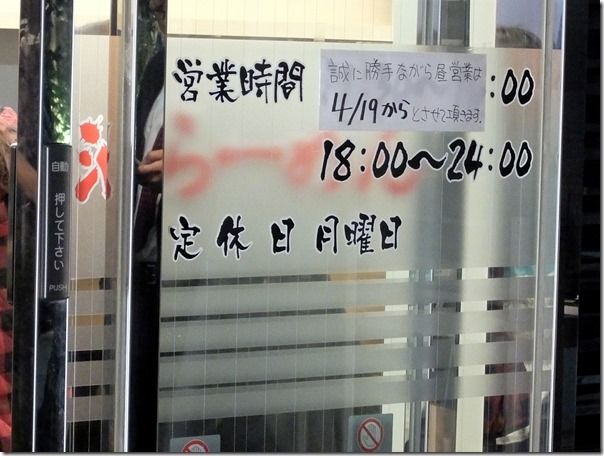 営業時間
誠に勝手ながら昼営業は
4/19からとさせて頂きます。
:00
18:00～24:00
定休日 月曜日
らーめん
自動
押して下さい
PUSH